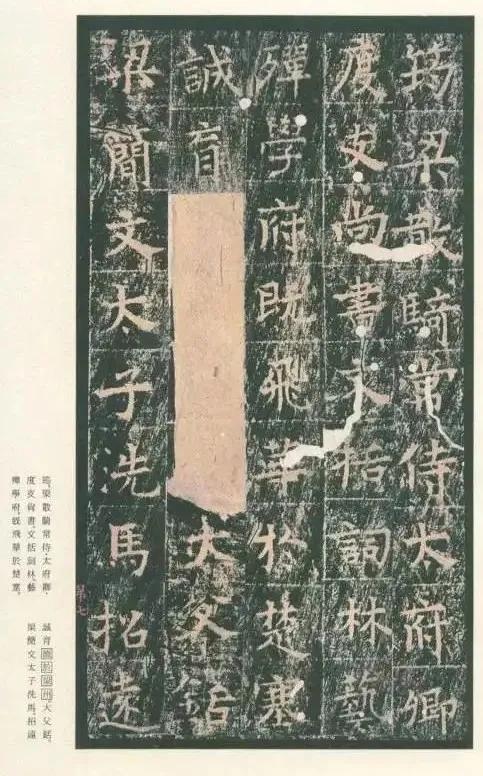 筠梁散騎常侍太府卿
度支尚書文括詞林藝
殫學府既飛華於楚塞
誠育大父銛
梁簡文太子洗馬招遠
第七
筠、梁散騎常侍太府卿、
度支尚書、文括詞林、藝
殫學府、既飛華於楚塞、
誠育大父銛、
梁簡文太子洗馬招遠